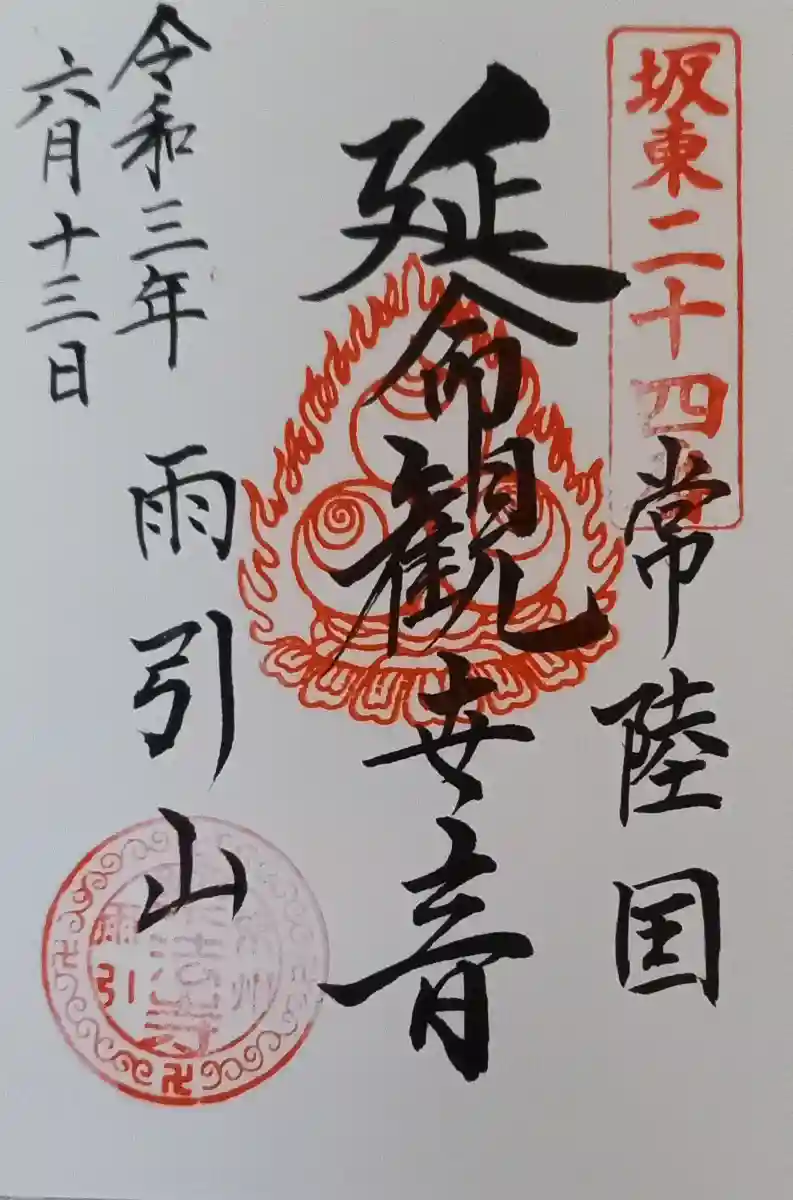 坂東二十四番
常陸国
延命観世音
令和三年
六月十三日
雨引山
常州
楽法寺
雨引